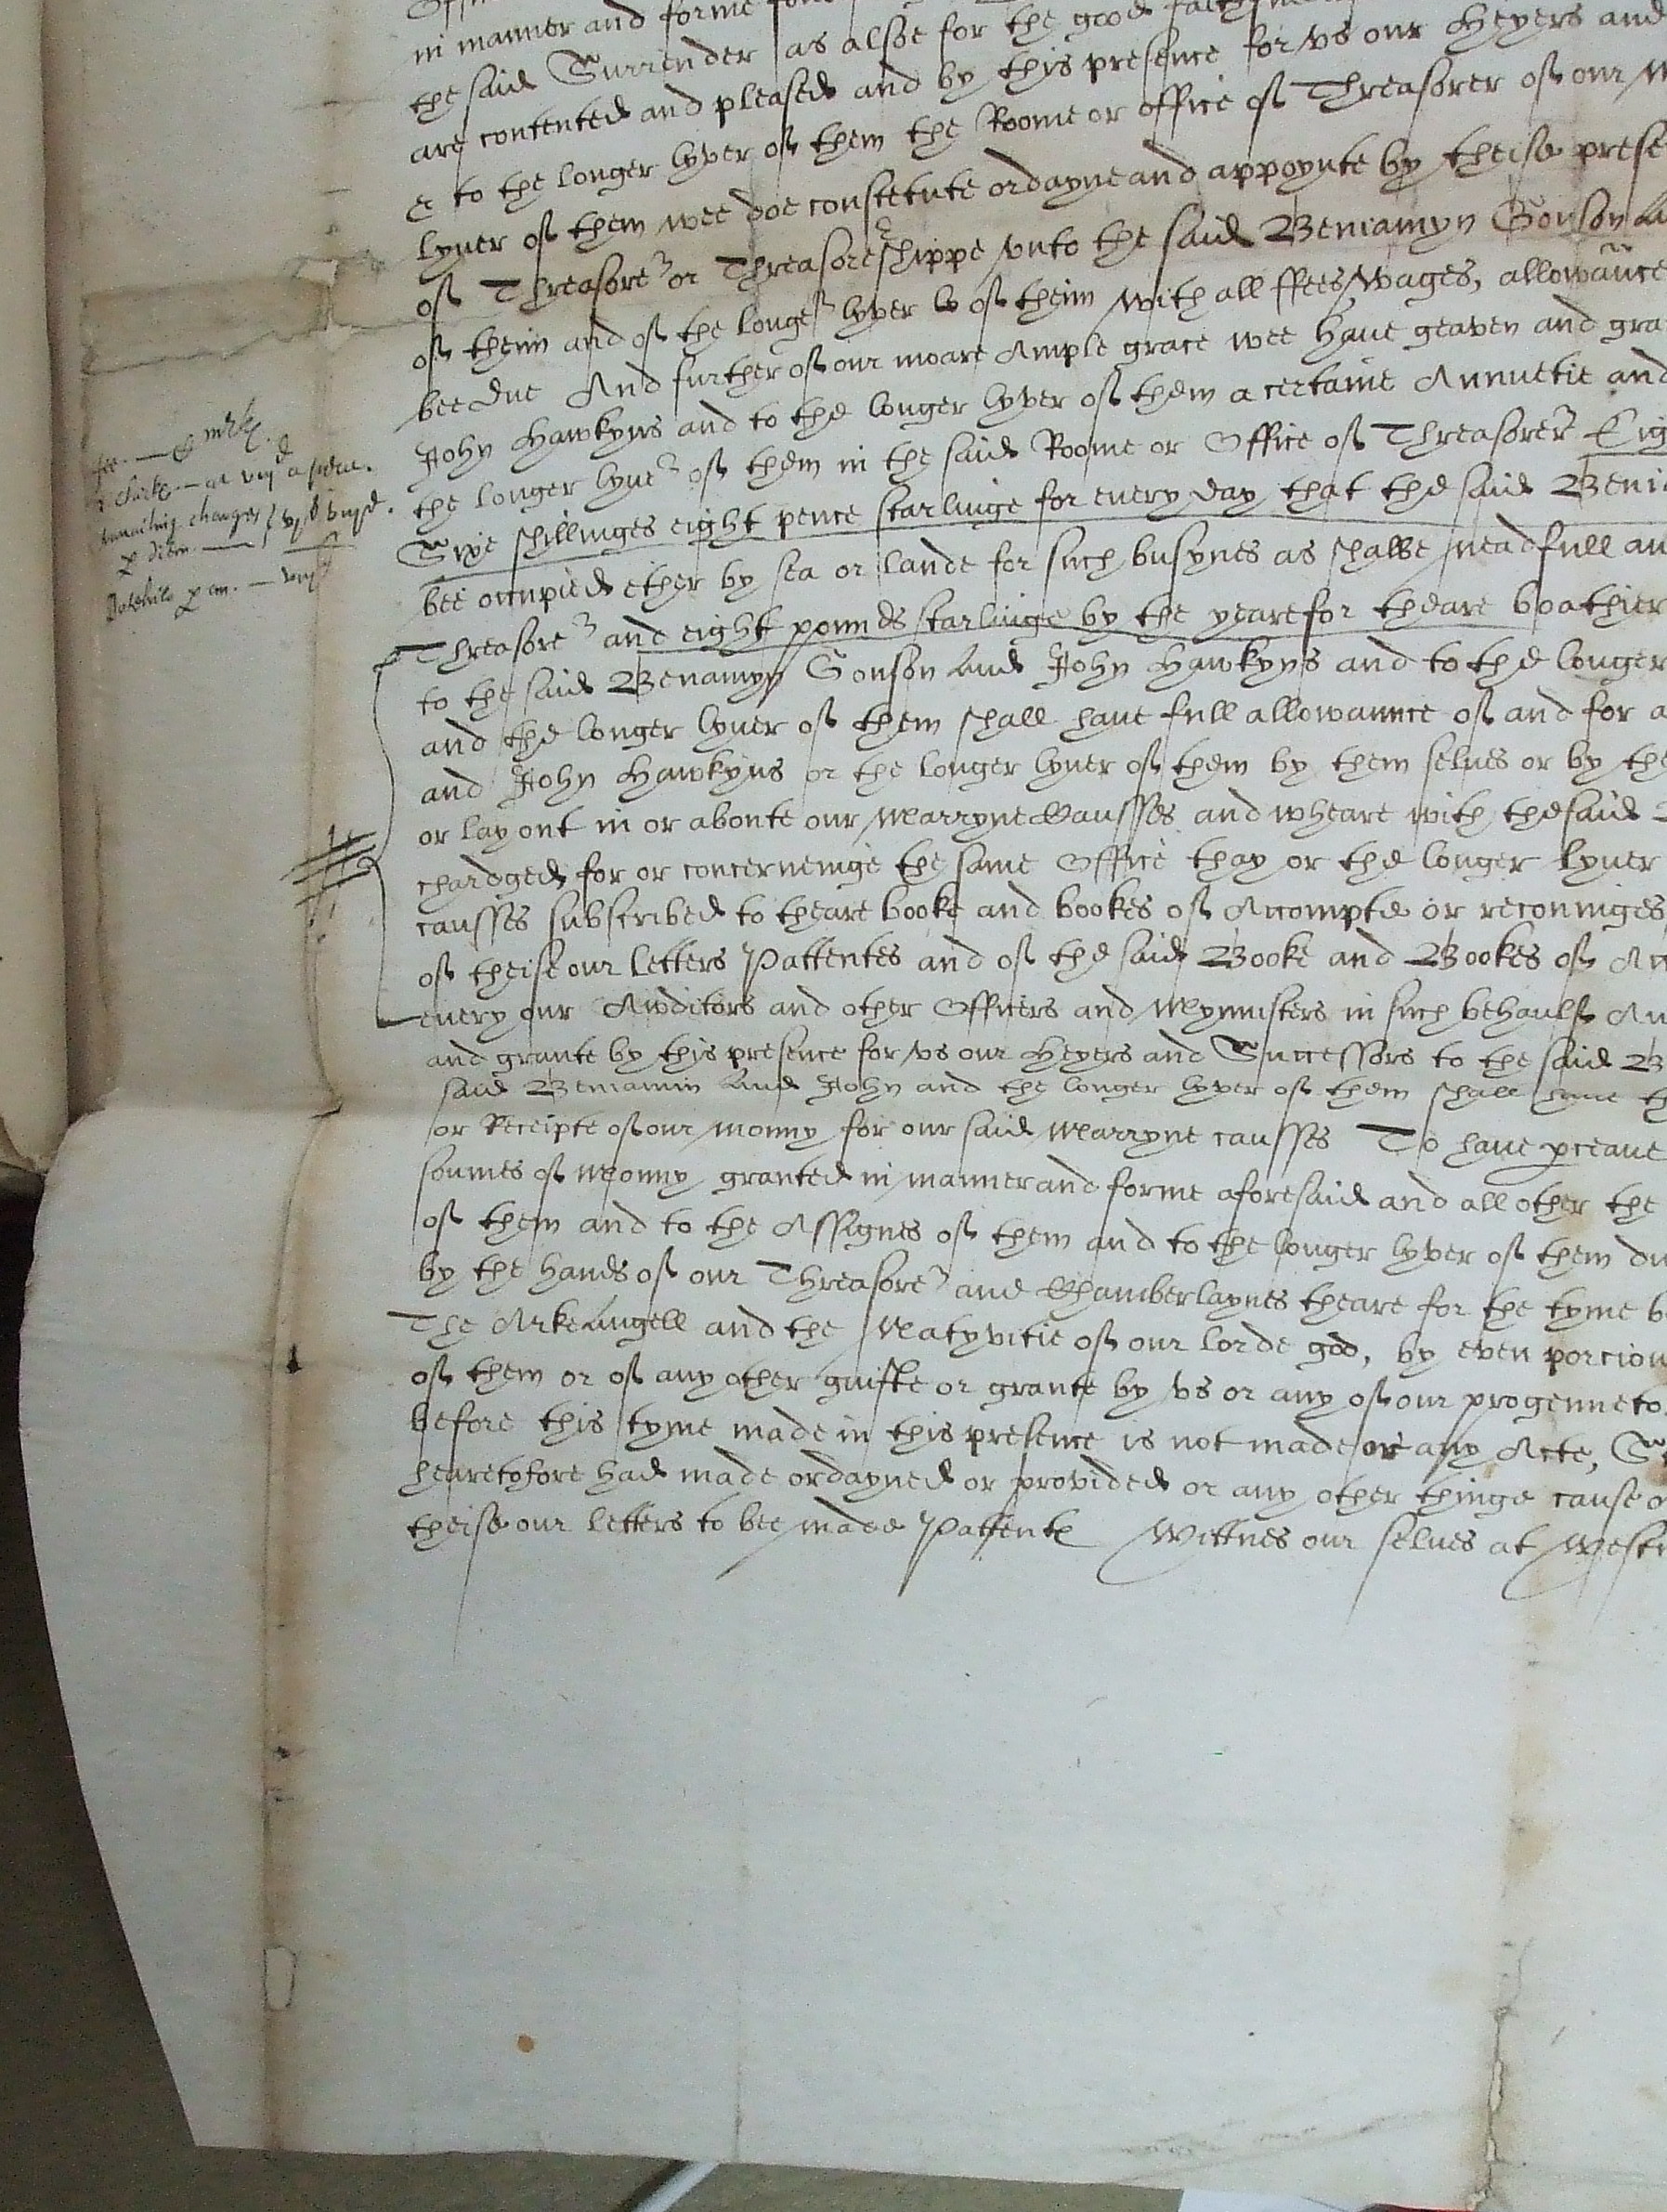 in manner and forme
the said Surrender as alsoe for the good
are contented and pleased and by this presence for vs our Heyers and
& to the longer lyver of them the Roome or office of Threasorer of our
lyuer of them wee doe constetute ordayne and appoynte by theise prese
of Threasorer or Threasoreshippe vnto the said Beniamyn Gonson And
of theim and of the longer lyver of theim with all ffees, wages, allowaunce
bee due And further of our moare Ample grace wee haue geaven and gra
John Hawkyns and to the longer lyver of them a certaine Annuetie and
the longer lyuer of them in the said Roome or Office of Threasorer
Sixe shillinges eight pence starlinge for euery day that the said Benia
bee occupied ether by sea or lande for such busynes as shalbe neadfull an
Threasorer and eight pounds starlinge by the yeare for theare boathier
to the said Benamyn Gonson And John Hawkyns and to the longer
and the longer lyuer of them shall haue full allowaunce of and for a
and John Hawkyns or the longer lyuer of them by them selues or by the
or lay out in or aboute our Marryne Causses and wheare with the said
chardged for or concerneinge the same Office thay or the longer lyuer
causses subscribed to theare booke and bookes of Accompte or reconinges
of theise our letters Pattentes and of the said Booke and Bookes of Acc
euery our Awditors and other Officers and Mynnisters in such behaulf An
and graunte by this presence for vs our Heyers and Successors to the said B
said Beniamin And John and the longer lyver of them shall haue th
or Receipte of our monny for our said Marryne causses To haue pceaue
sommes of Monny granted in manner and forme aforesaid and all other the
of them and to the Assignes of them and to the longer lyver of them du
by the hands of our Threasorer and Chamberlaynes theare for the tyme b
The Arke Angell and the Natyvitie of our lorde god, by even porcion
of them or of any other guifte or grante by vs or any of our progenneto
before this tyme made in this presence is not made or any Acte, St
hearetofore had made ordayned or provided or any other thinge cause o
theise our letters to bee made Pattent Wittnes our selues at Westm
fee. — C mrk
clarke
travailing charges vjs viijd.
p diem
Botehire p an. — viijl